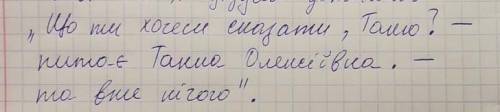 „Що ти хочеш сказати, Таню? –
пита-є Ганна Олексіївна. –
та вже нічого".